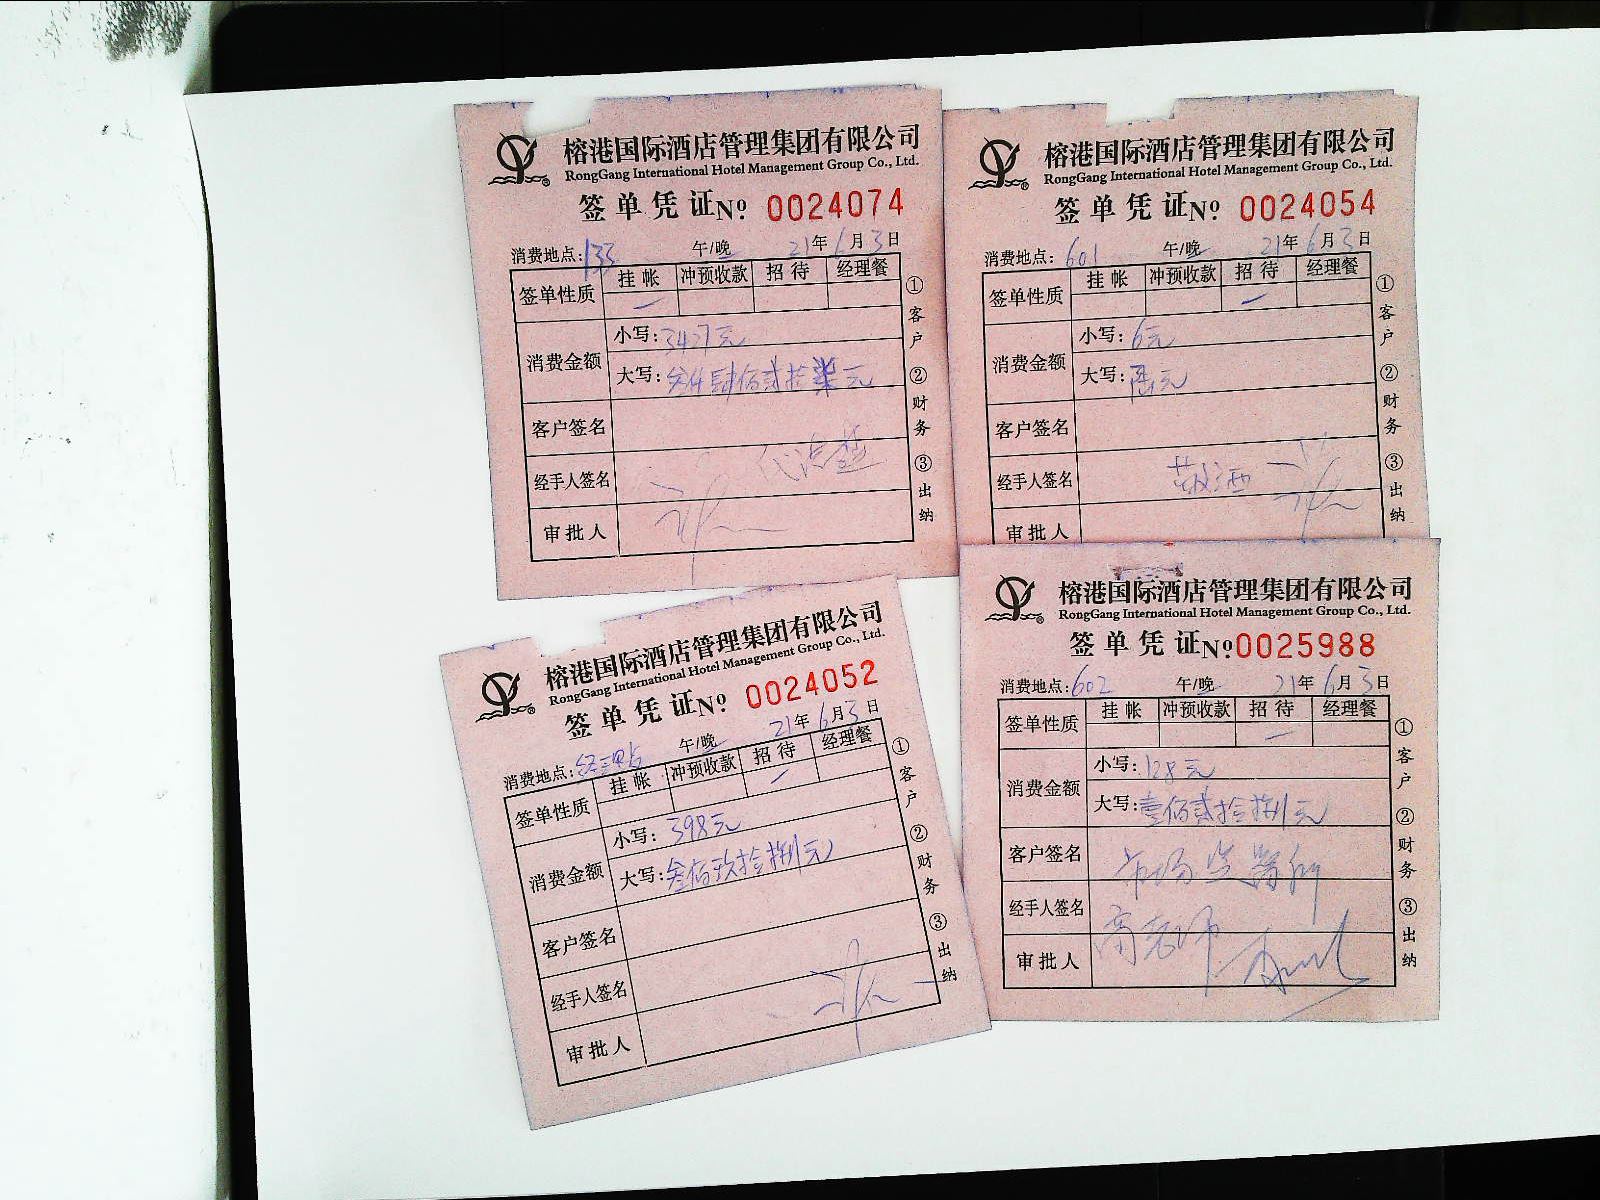 榕港国际酒店管理集团有限公司
RongGang International Hotel Management Group Co., Ltd.
签单凭证№ 0024074
消费地点:133 午/晚 21年6月3日
签单性质 挂帐 冲预收款 招待 经理餐
消费金额
小写:3427元
大写:叁仟肆佰贰拾柒元
客户签名
经手人签名
审批人
①客户 ②财务 ③出纳
榕港国际酒店管理集团有限公司
RongGang International Hotel Management Group Co., Ltd.
签单凭证№ 0024054
消费地点:601 午/晚 21年6月3日
签单性质 挂帐 冲预收款 招待 经理餐
消费金额
小写:6元
大写:陆元
客户签名
经手人签名
审批人
①客户 ②财务 ③出纳
榕港国际酒店管理集团有限公司
RongGang International Hotel Management Group Co., Ltd.
签单凭证№ 0024052
消费地点: 午/晚 21年6月3日
签单性质 挂帐 冲预收款 招待 经理餐
消费金额
小写:398元
大写:叁佰玖拾捌元
客户签名
经手人签名
审批人
①客户 ②财务 ③出纳
榕港国际酒店管理集团有限公司
RongGang International Hotel Management Group Co., Ltd.
签单凭证№ 0025988
消费地点:602 午/晚 21年6月3日
签单性质 挂帐 冲预收款 招待 经理餐
消费金额
小写:128元
大写:壹佰贰拾捌元
客户签名 市场监督所
经手人签名
审批人
①客户 ②财务 ③出纳